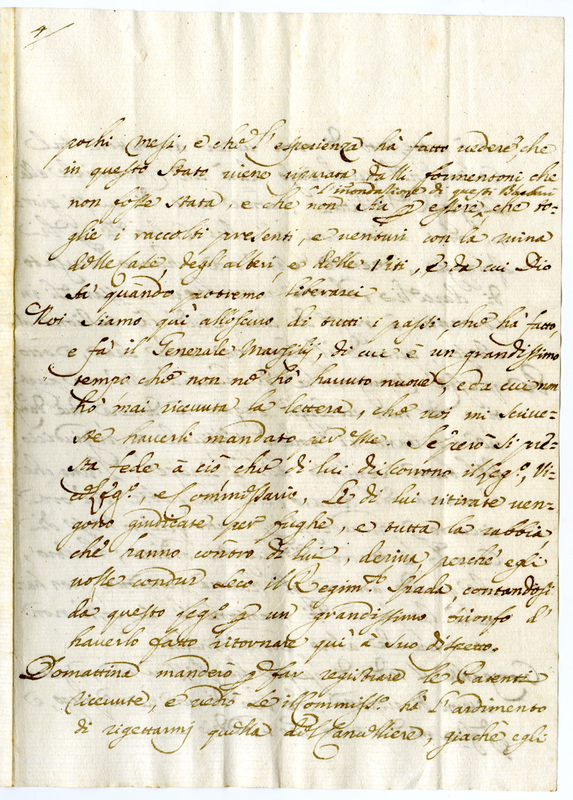 4
pochi mesi, e che l'esperienza hà fatto vedere, che
in questo Stato viene riparata dalli formentoni che
non fosse stata, e che non stia p essere l'inondazione di questi che to-
glie i raccolti presenti, e venturi con la ruina
delle case, degl'alberi, e delle viti, e da cui Dio
sà quando potremo liberarci
Noi siamo quì all'oscuro di tutti i passi, che hà fatto,
e fà il Generale Marsilij, di cui è un grandissimo
tempo che non ne hò havuto nuove, e da cui non
hò mai ricevuta la lettera, che voi mi scrive-
ste haverli mandato per me. Se però si pre-
sta fede à ciò che di lui discorrono il Leg.º, Vi-
celeg.º, e Commissario, le di lui ritirate ven-
gono giudicate per fughe, e tutta la rabbia,
che hanno contro di lui, deriva, perche egli
volle condur seco il Regim.to Spada, contandosi
da questo Leg.º p un grandissimo trionfo d'
haverlo fatto ritornare quì à suo dispetto.
Domattina manderò p far registrare le Patenti
ricevute, e vedrò se il Commiss.º hà l'ardimento
di rigettarmi quella del Cancelliere, giache egli